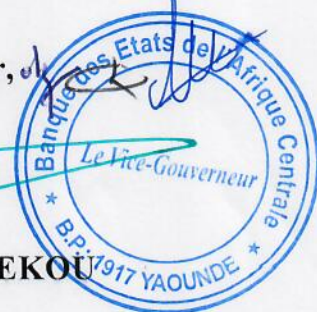 Banque des Etats de l'Afrique Centrale
Le Vice-Gouverneur
* B.P: 1917 YAOUNDE *
EKOU